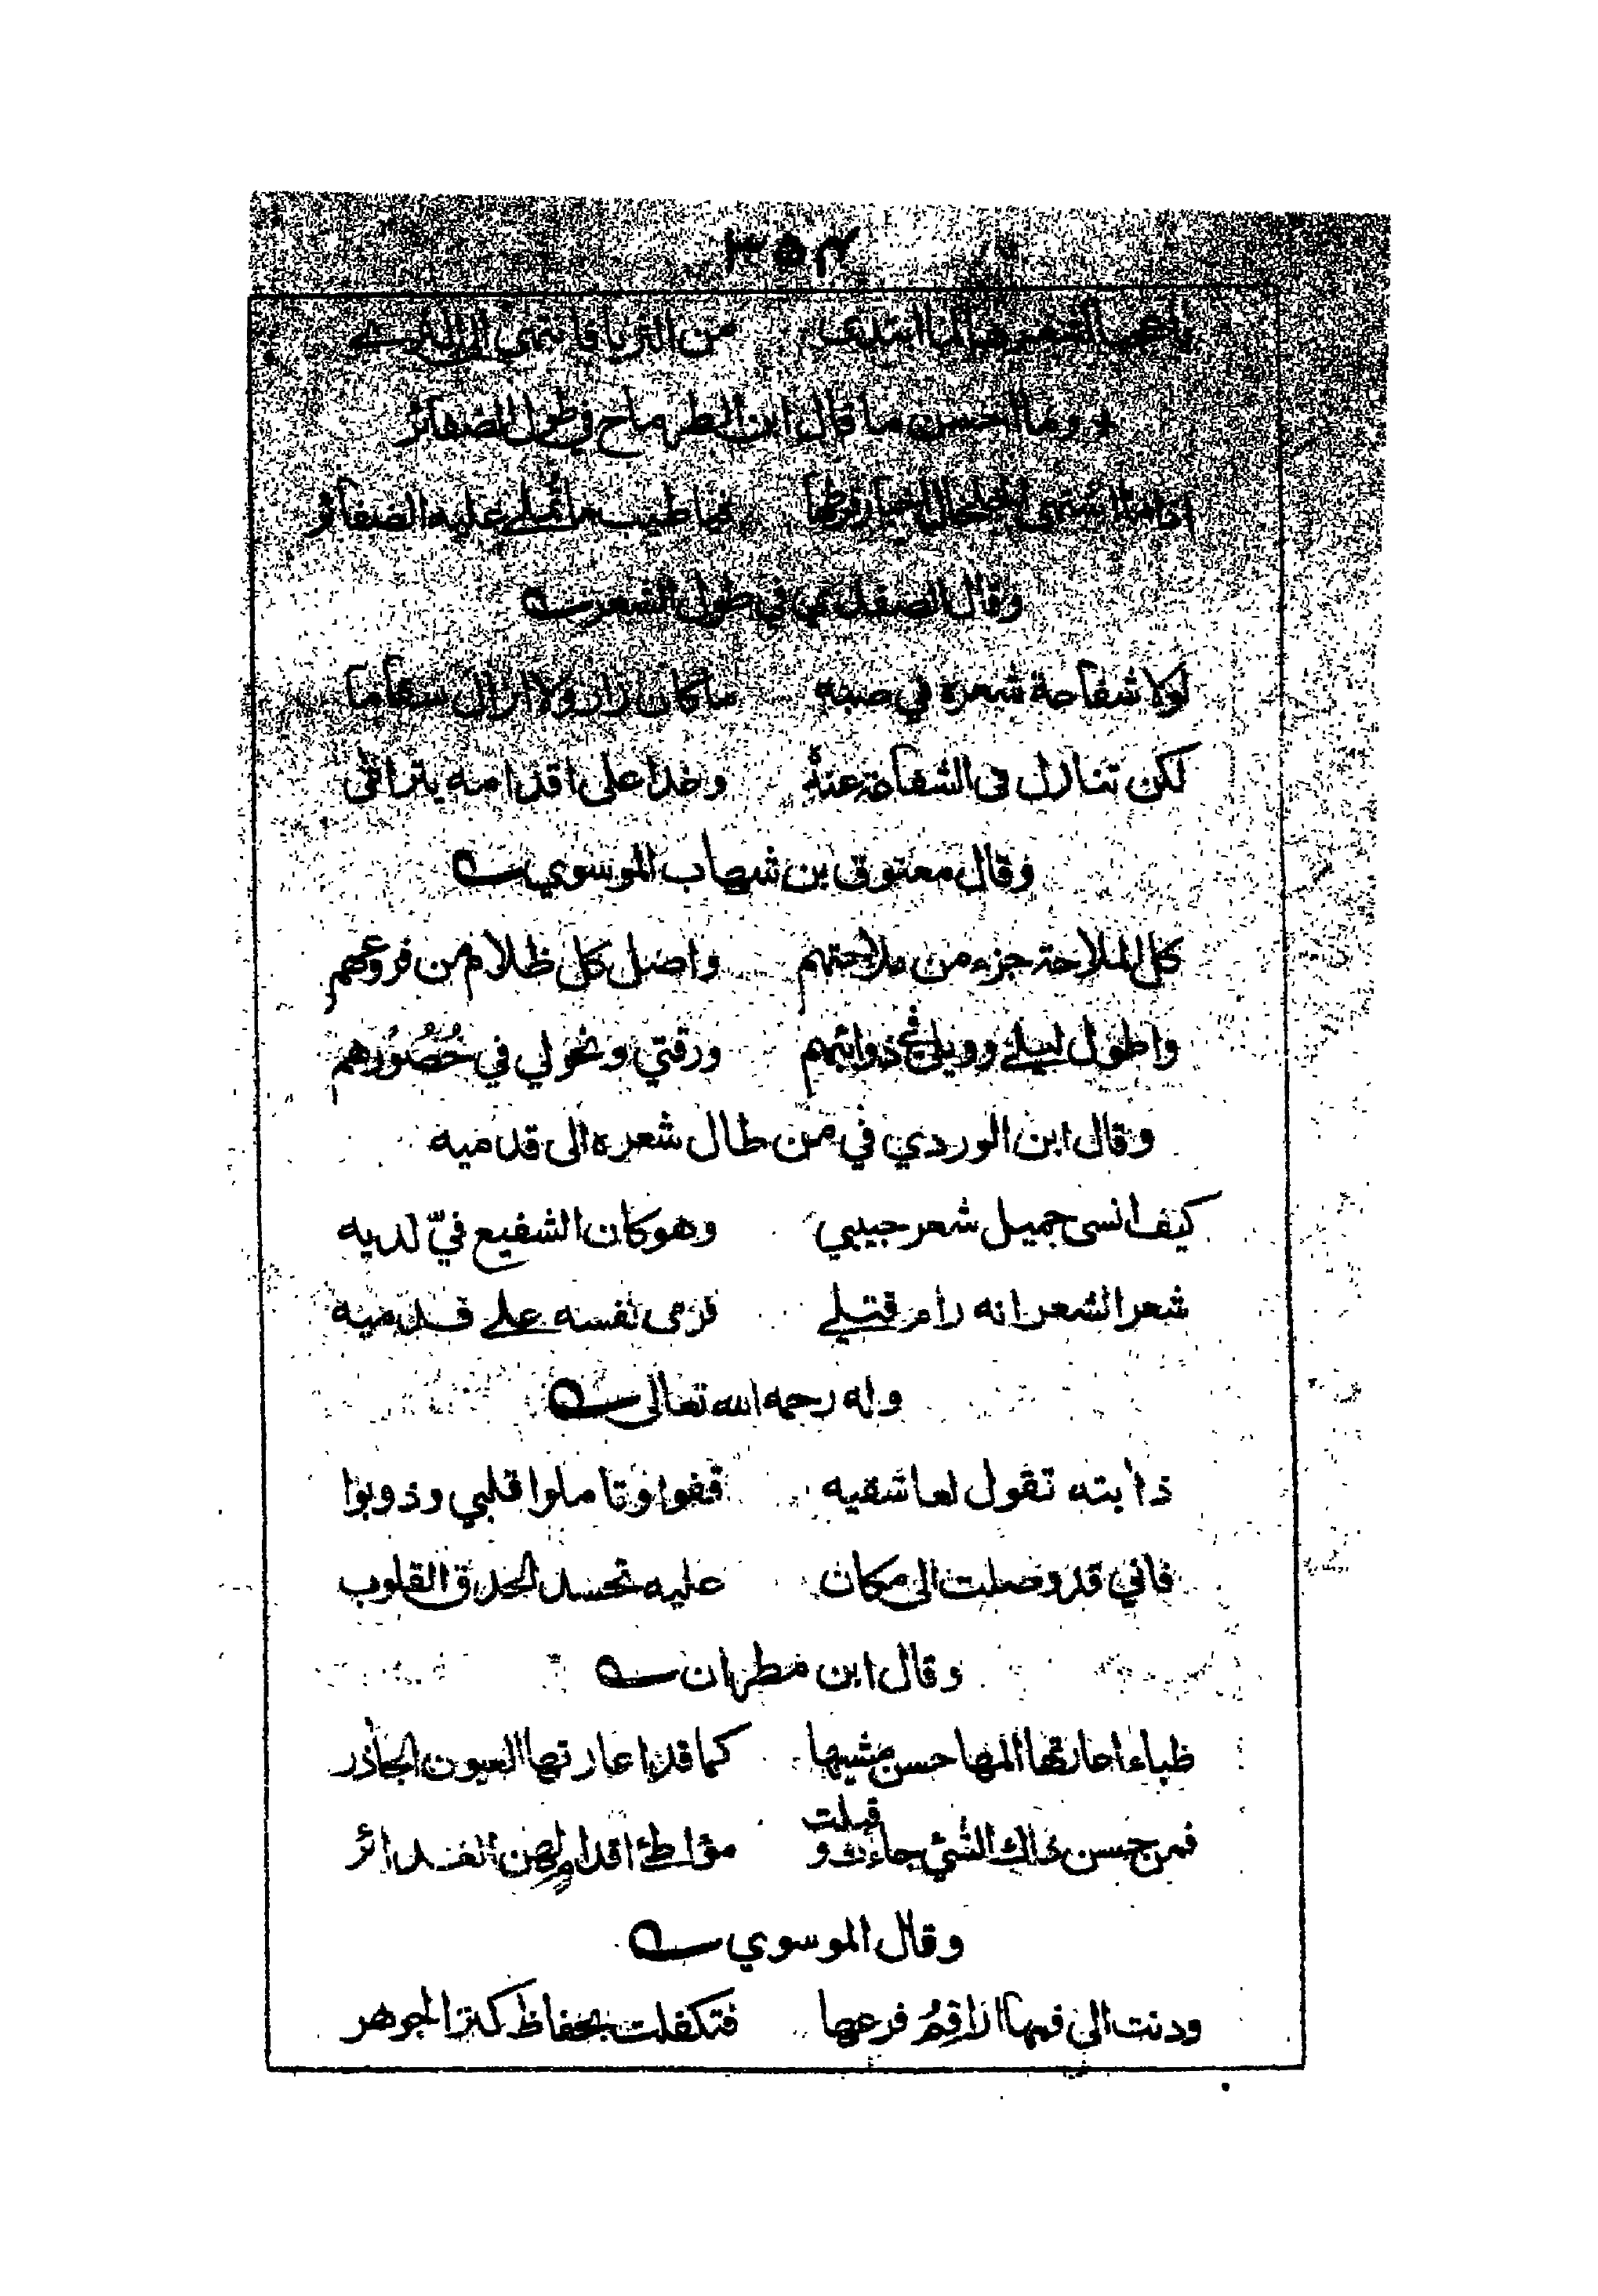 ٣٥٤
من الثريا فانتهى الى الثرى
وما احسن ما قال ابن الطرماح في طول الضفائر
اذا ما اشتهى الخلخال اخبار قرطها فيا طيب ما تملي عليه الضفائر
وقال الصفدي في طول الشعر
لولا شفاعة شعره في صبه ما كان زار ولا ازال سقاما
لكن تنازل في الشفاعة عنده وغدا على اقدامه يترامى
وقال معتوق بن شهاب الموسوي
كل الملاحة جزء من ملاحتهم واصل كل ظلام من فروعهم
واطول ليلي وويلي في ذوائبهم ورقتي ونحولي في خُصُورهم
وقال ابن الوردي في من طال شعره الى قدميه
كيف انسى جميل شعر حبيبي وهو كان الشفيع فيّ لديه
شعر الشعر انه رام قتلي فرمى نفسه على قدميه
وله رحمه الله تعالى
ذابته تقول لعاشقيه قفوا وتاملوا قلبي وذوبوا
فاني قد وصلت الى مكان عليه تحسد الحدق القلوب
وقال ابن مطران
ظباء اعارتها المها حسن مشيها كما قد اعارتها العيون الجاذر
فمن حسن ذاك المشي جاءت وقبلت مواطئ اقدام لهن الغدائر
وقال الموسوي
ودنت الى فمها اراقم فرعها فتكفلت بحفاظ كنز الجوهر